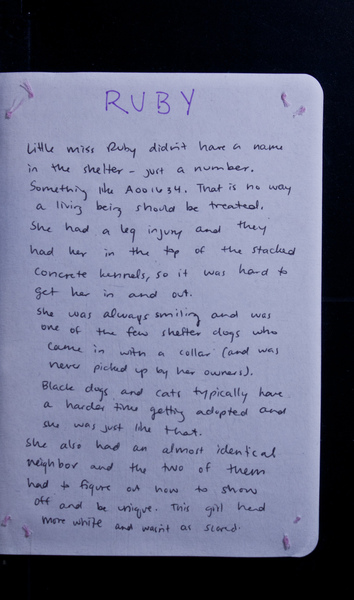 RUBY
Little miss Ruby didn't have a name
in the shelter - just a number.
Something like A001634. That is no way
a living being should be treated.
She had a leg injury and they
had her in the top of the stacked
concrete kennels, so it was hard to
get her in and out.
She was always smiling and was
one of the few shelter dogs who
came in with a collar (and was
never picked up by her owners).
Black dogs and cats typically have
a harder time getting adopted and
she was just like that.
She also had an almost identical
neighbor and the two of them
had to figure out how to show
off and be unique. This girl had
more white and wasn't as scared.